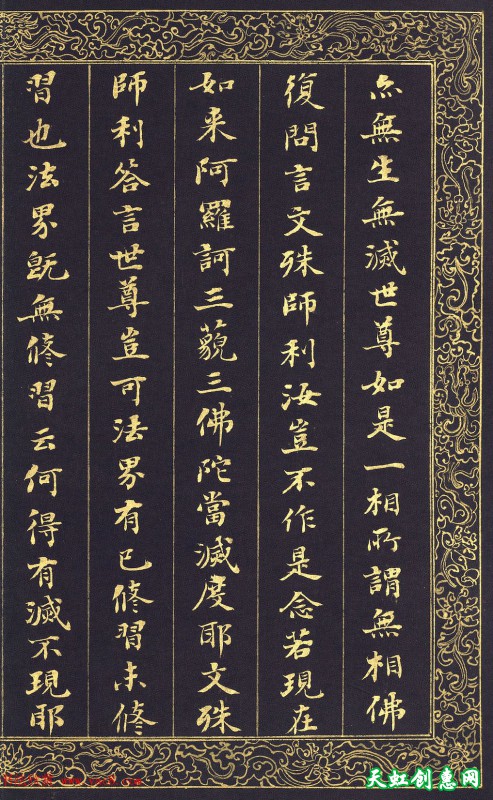 亦無生無滅世尊如是一相所謂無相佛
復問言文殊師利汝豈不作是念若現在
如来阿羅訶三藐三佛陀當滅度耶文殊
師利答言世尊豈可法界有已修習未修
習也法界既無修習云何得有滅不現耶
天虹创惠网